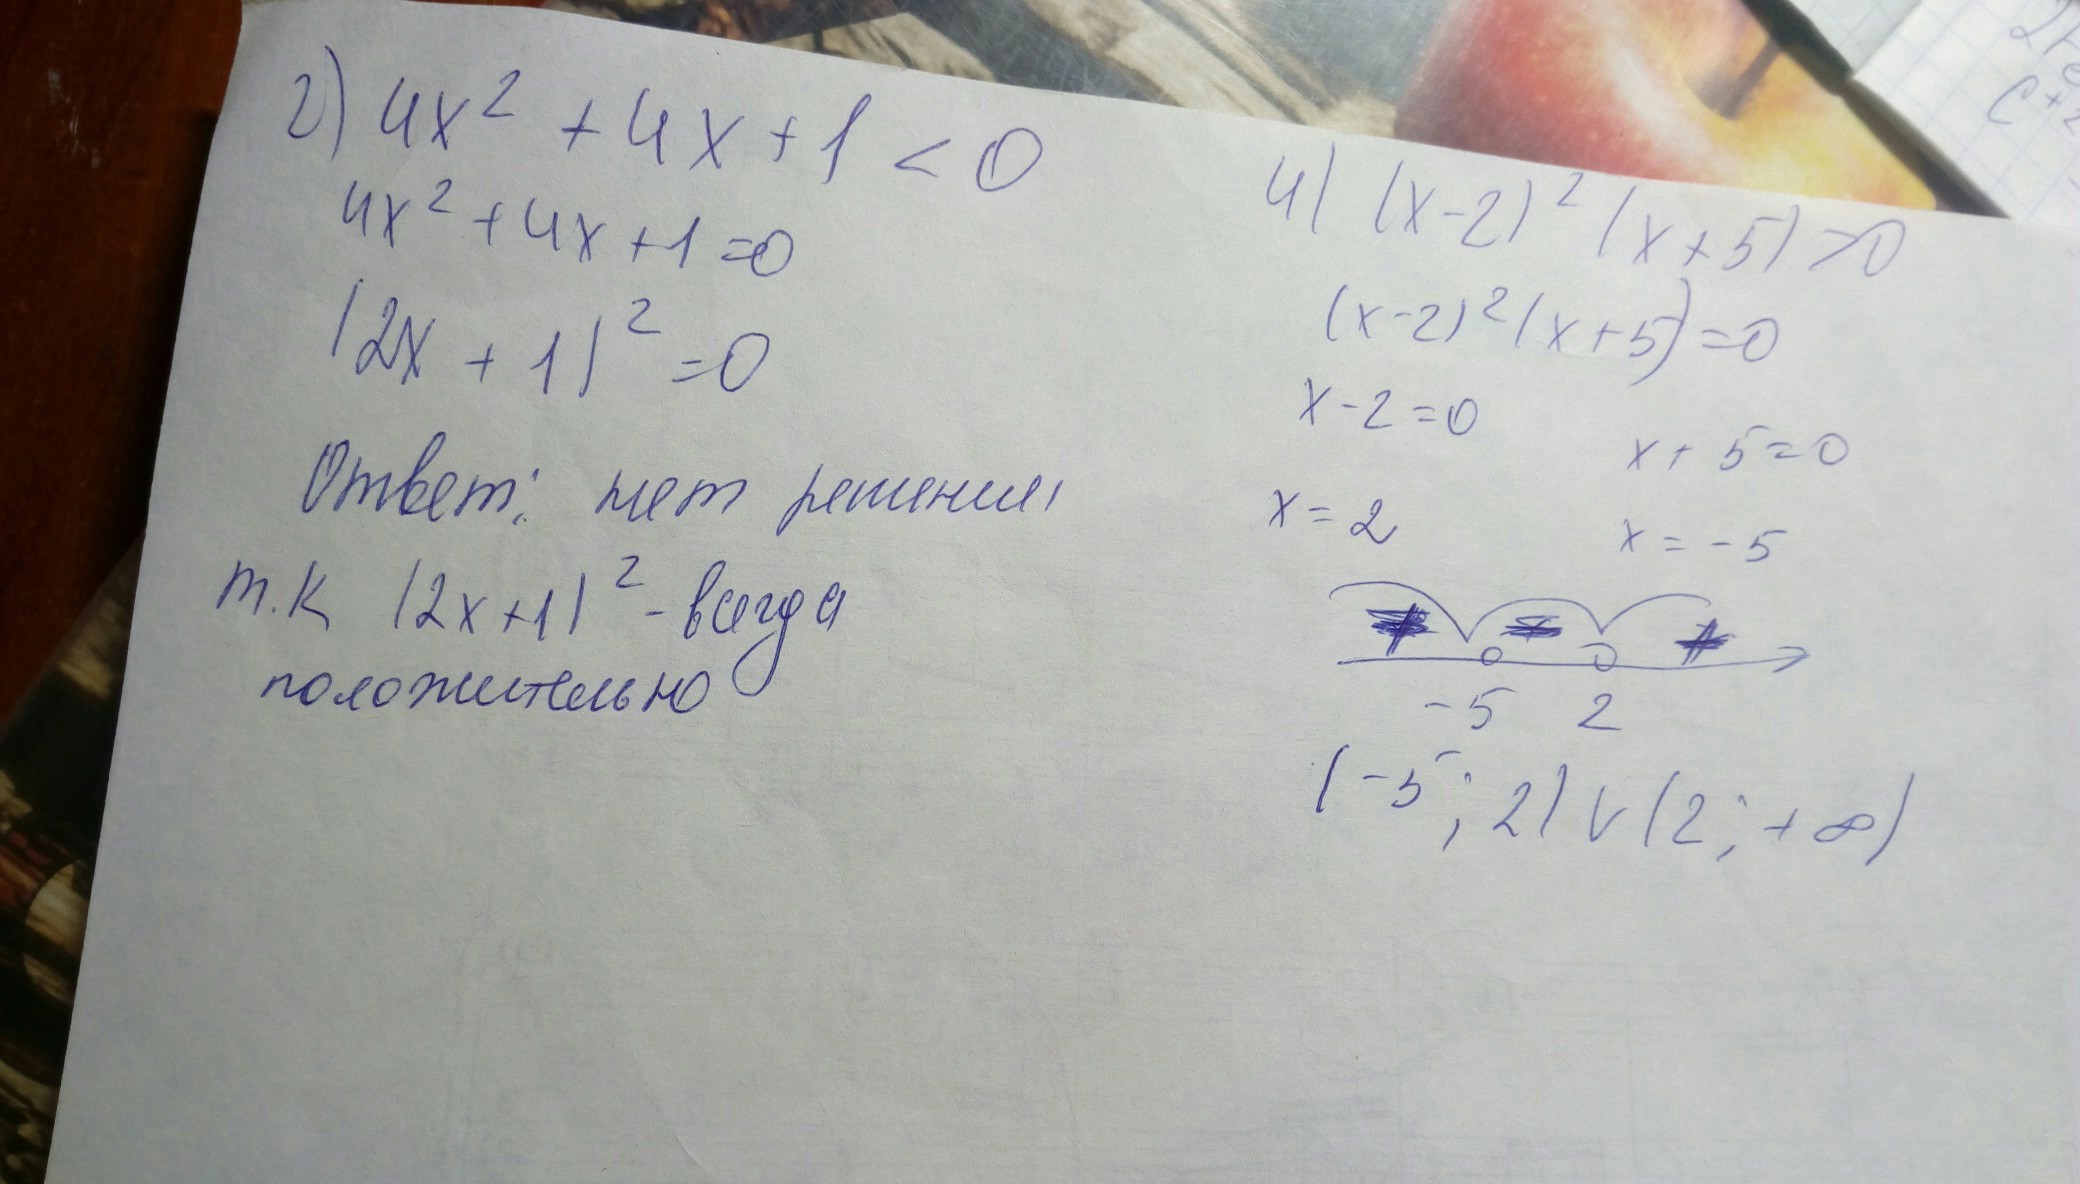 2) 4x² + 4x + 1 < 0
4x² + 4x + 1 = 0
(2x + 1)² = 0
Ответ: нет решения
т.к (2x+1)² - всегда
положительно
4) (x-2)² (x+5) > 0
(x-2)² (x+5) = 0
x - 2 = 0
x + 5 = 0
x = 2
x = -5
-5 2
(-5; 2) ∨ (2; +∞)